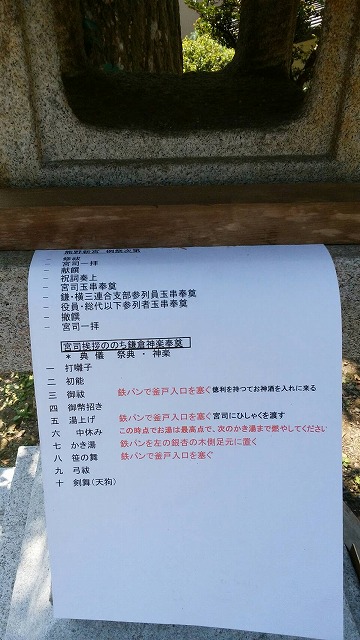 熊野新宮 例祭次第
一 修祓
一 宮司一拝
一 献饌
一 祝詞奏上
一 宮司玉串奉奠
一 鎌・横三連合支部参列員玉串奉奠
一 役員・総代以下参列者玉串奉奠
一 撤饌
一 宮司一拝
宮司挨拶ののち鎌倉神楽奉奠
* 典儀 祭典・神楽
一 打囃子
二 初能
三 御祓 鉄パンで釜戸入口を塞ぐ 徳利を持つてお神酒を入れに来る
四 御幣招き
五 湯上げ 鉄パンで釜戸入口を塞ぐ 宮司にひしゃくを渡す
六 中休み この時点でお湯は最高点で、次のかき湯まで燃やしてください
七 かき湯 鉄パンを左の銀杏の木側足元に置く
八 笹の舞 鉄パンで釜戸入口を塞ぐ
九 弓祓
十 剣舞(天狗)